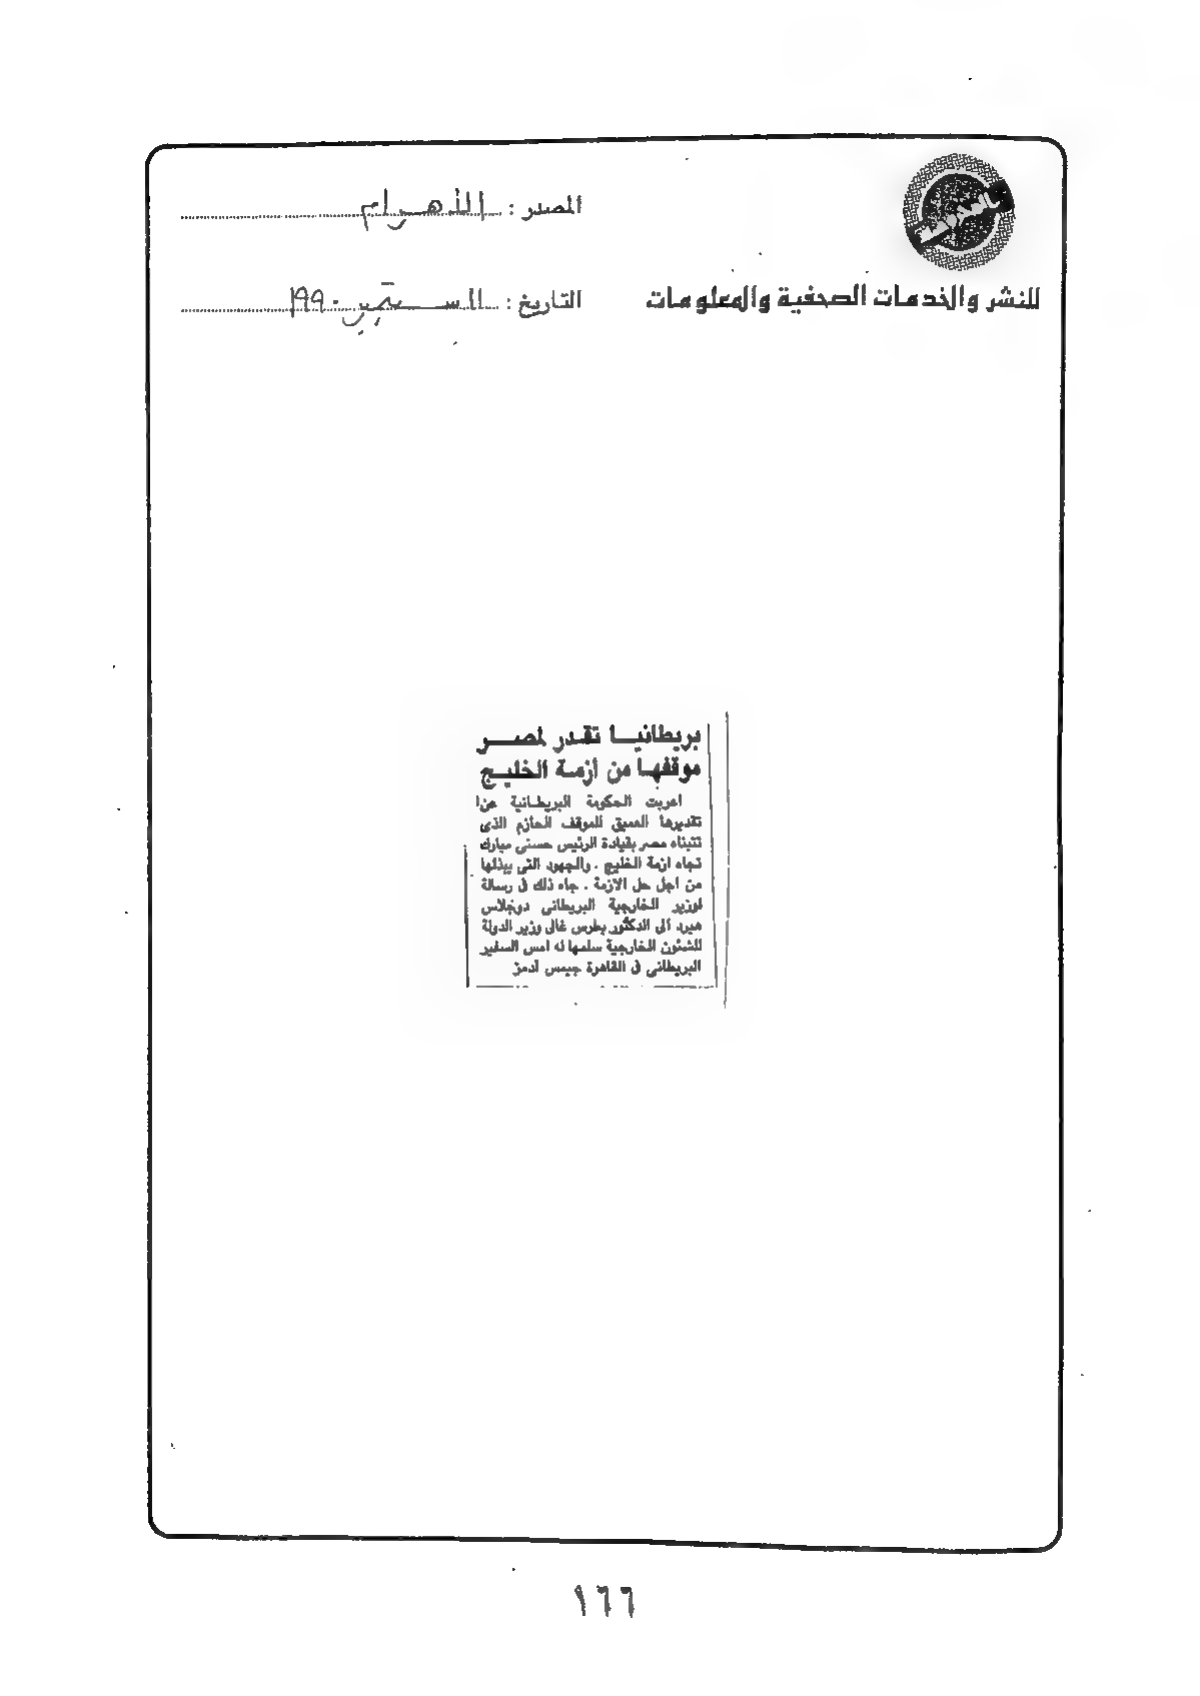 المصدر : الأهرام
للنشر والخدمات الصحفية والمعلومات
التاريخ : ١١ سبتمبر ١٩٩٠
بريطانيا تقدر لمصر
موقفها من أزمة الخليج
اعربت الحكومة البريطانية عن
تقديرها العميق للموقف الحازم الذى
تتبناه مصر بقيادة الرئيس حسنى مبارك
تجاه ازمة الخليج . والجهود التى يبذلها
من اجل حل الازمة . جاء ذلك فى رسالة
لوزير الخارجية البريطانى دوجلاس
هيرد الى الدكتور بطرس غالى وزير الدولة
للشئون الخارجية سلمها له امس السفير
البريطانى فى القاهرة جيمس آدمز
١٦٦